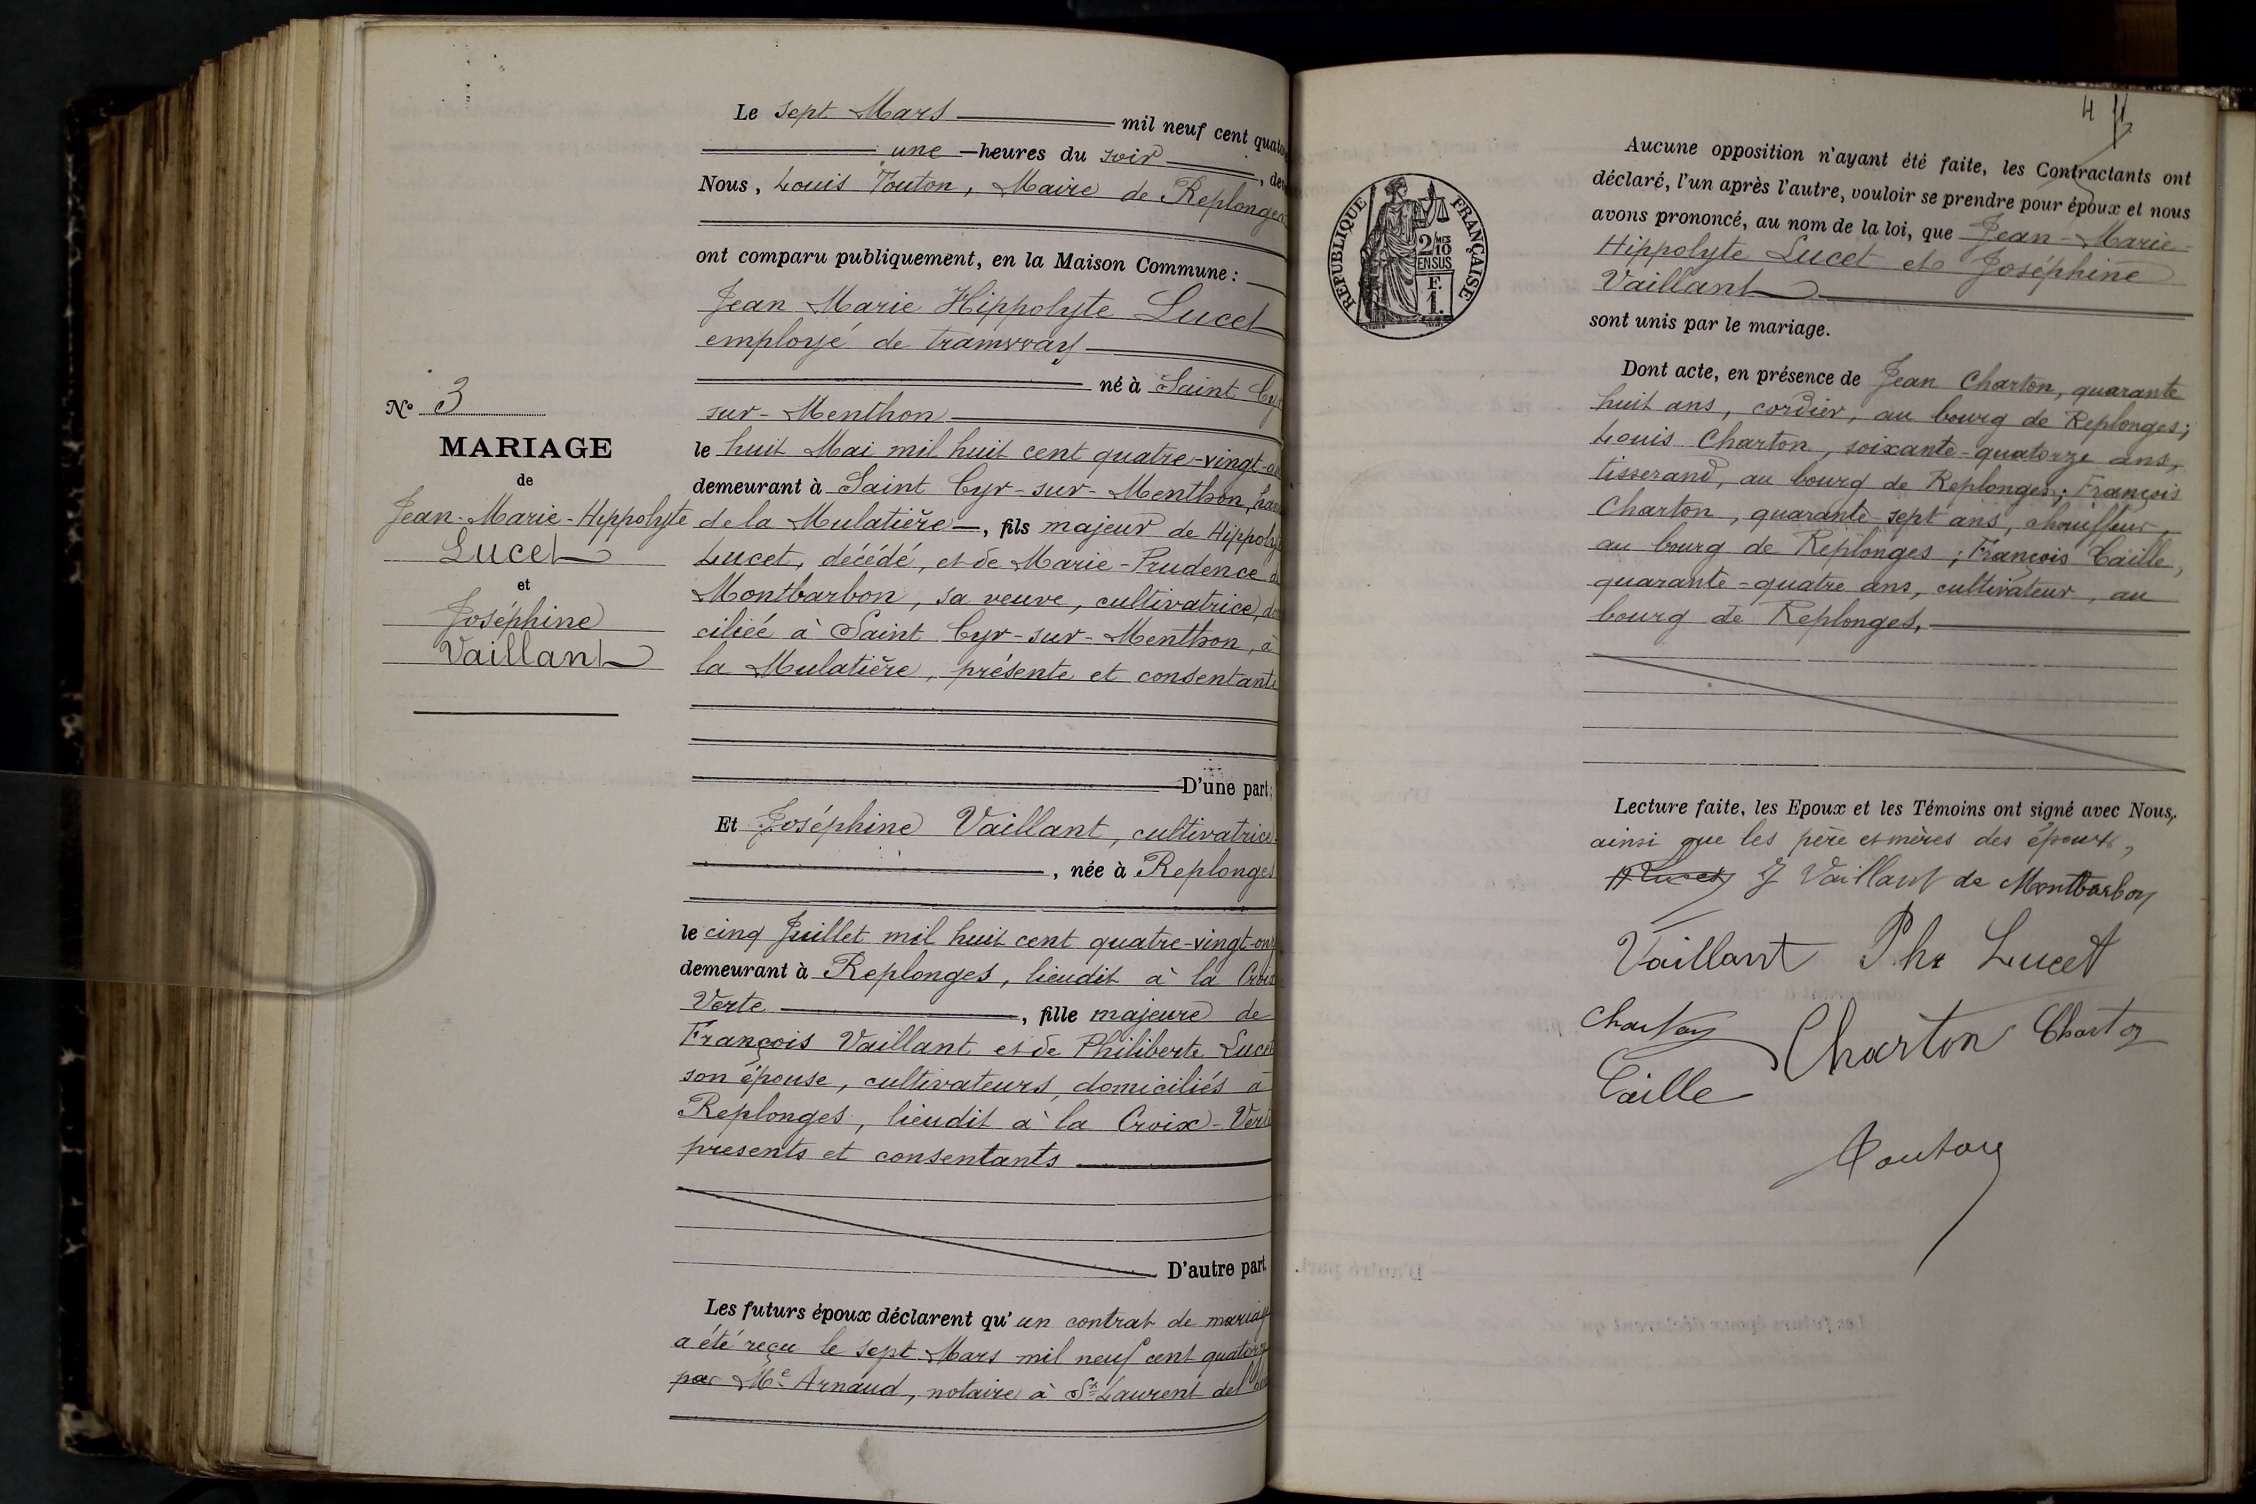 Le sept Mars mil neuf cent quato
une heures du soir, de
Nous, Louis Touton, Maire de Replonges
ont comparu publiquement, en la Maison Commune :
Jean Marie Hippolyte Lucet
employé de tramway
né à Saint Cyr
sur-Menthon
le huit Mai mil huit cent quatre-vingt-
demeurant à Saint Cyr-sur-Menthon, ham
de la Mulatière, fils majeur de Hippolyte
Lucet, décédé, et de Marie-Prudence de
Montbarbon, sa veuve, cultivatrice, do
ciliée à Saint Cyr-sur-Menthon, à
la Mulatière, présente et consentante
D'une part;
Nº 3
MARIAGE
de
Jean-Marie-Hippolyte
Lucet
et
Joséphine
Vaillant
Et Joséphine Vaillant, cultivatrice
, née à Replonges
le cinq Juillet mil huit cent quatre-vingt-onz
demeurant à Replonges, lieudit à la Croix
Verte, fille majeure de
François Vaillant et de Philiberte Lucet
son épouse, cultivateurs, domiciliés à
Replonges, lieudit à la Croix-Verte
presents et consentants
D'autre part.
Les futurs époux déclarent qu'un contrat de mariage
a été reçu le sept Mars mil neuf cent quatorze
par Me Arnaud, notaire à St Laurent del'
4
Aucune opposition n'ayant été faite, les Contractants ont
déclaré, l'un après l'autre, vouloir se prendre pour époux et nous
avons prononcé, au nom de la loi, que Jean-Marie-
Hippolyte Lucet et Joséphine
Vaillant
sont unis par le mariage.
REPUBLIQUE FRANÇAISE
2/10 MES
EN SUS
F.
1.
Dont acte, en présence de Jean Charton, quarante
huit ans, cordier, au bourg de Replonges;
Louis Charton, soixante-quatorze ans,
tisserand, au bourg de Replonges; François
Charton, quarante-sept ans, chouiffeur,
au bourg de Replonges; François Caille,
quarante-quatre ans, cultivateur, au
bourg de Replonges.
Lecture faite, les Epoux et les Témoins ont signé avec Nous,
ainsi que les père et mères des époux,
H Lucet J Vaillant de Montbarbon
Vaillant Phte Lucet
Charton Charton Charton
Caille
Touton